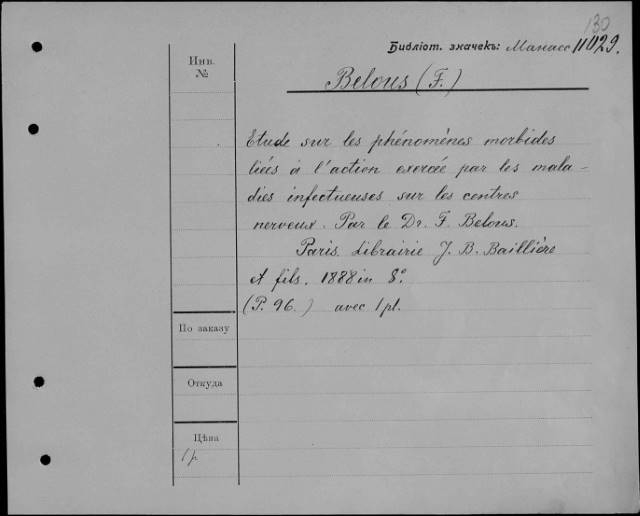 130
Библіот. значекъ: Манасс 11029.
Инв.
№
Belous (F.)
Etude sur les phénomènes morbides
liées à l'action exercée par les mala-
dies infectueuses sur les centres
nerveux. Par le Dr. F. Belous.
Paris. Librairie J. B. Baillière
et fils. 1888 in 8°.
(P. 96.) avec 1 pl.
По заказу
Откуда
Цѣна
1 р